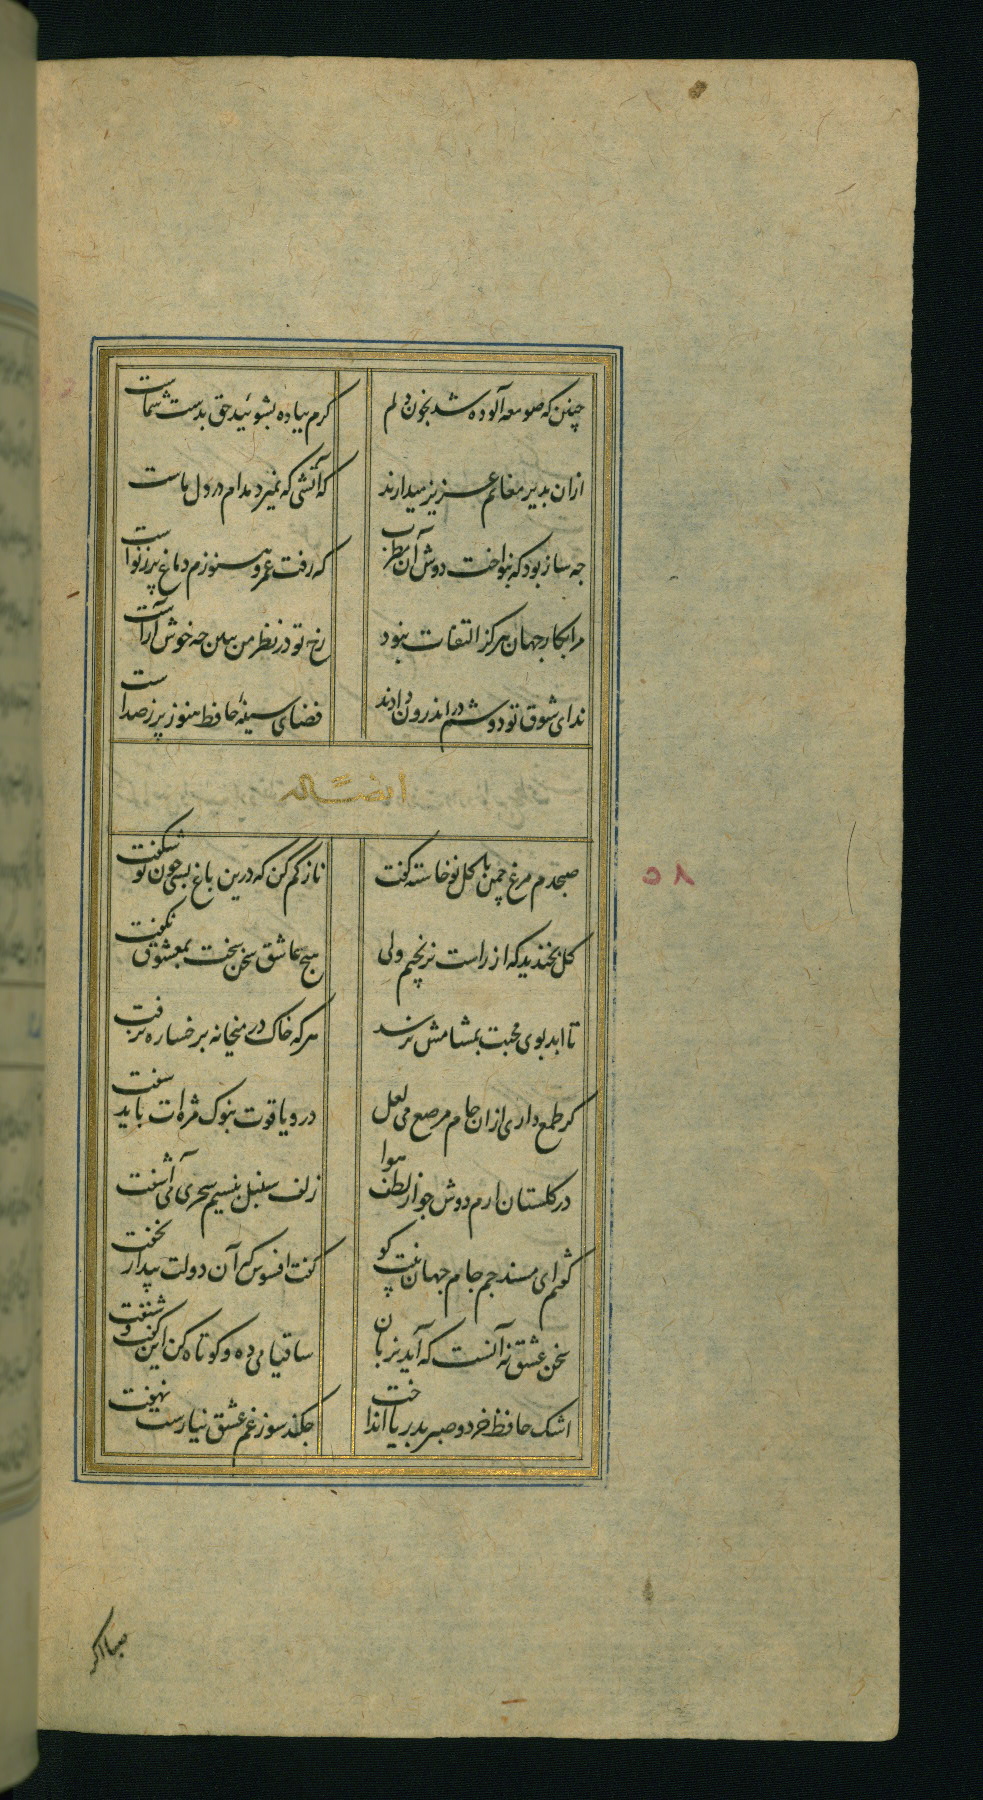 چنین که صومعه آلوده شد بخون دلم
کرم بباده بشوئید حق بدست شماست
ازان بدیر مغانم عزیز میدارند
که آتشی که نمیرد مدام در دل ماست
چه ساز بود که بنواخت دوش آن مطرب
که رفت عمر و هنوزم دماغ پرز نواست
مرا بکار جهان هرکز التفات نبود
رخ تو در نظر من چنین چه خوش آراست
ندای شوق تو دوشم در اندرون دادند
فضای سینهٔ حافظ هنوز پرز صداست
صبحدم مرغ چمن با کل نو خاسته کفت
ناز کم کن که درین باغ بسی چون تو شکفت
کل بخندید که از راست نرنجیم ولی
هیچ عاشق سخن سخت بمعشوق نکفت
تا ابد بوی محبت بمشامش نرسد
هرکه خاک در میخانه برخساره نرفت
کر طمع داری ازان جام مرصع می لعل
در و یاقوت بنوک مژه ات باید سفت
در کلستان ارم دوش چو از لطف هوا
زلف سنبل بنسیم سحری می آشفت
کفتم ای مسند جم جام جهان بینت کو
کفت افسوس که آن دولت بیدار بخفت
سخن عشق نه آنست که آید بزبان
ساقیا می ده و کوتاه کن این کفت و شنفت
اشک حافظ خرد و صبر بدریا انداخت
چکند سوز غم عشق نیارست نهفت
۲۸
صبا اکر